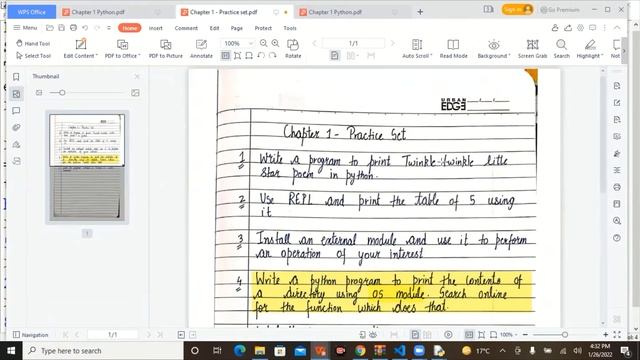 WPS Office
Chapter 1 Python.pdf
Chapter 1 - Practice set.pdf
Chapter 1 Python.pdf
Sign in
Go Premium
Hand Tool
Select Tool
Edit
PDF to Office
PDF to Picture
Annotate
100%
Rotate
1/1
Auto Scroll
Read Mode
Background
Screen Grab
Find
Thumbnail
Chapter 1 - Practice Set
1 Write a program to print Twinkle twinkle little
star poem in python.
2 Use REPL and print the table of 5 using
it
3 Install an external module and use it to perform
an operation of your interest
4 Write a python program to print the contents of
a directory using OS module. Search online
for the function which does that.
1
Navigation
1/1
100%
Type here to search
17°C
4:32 PM
1/26/2022